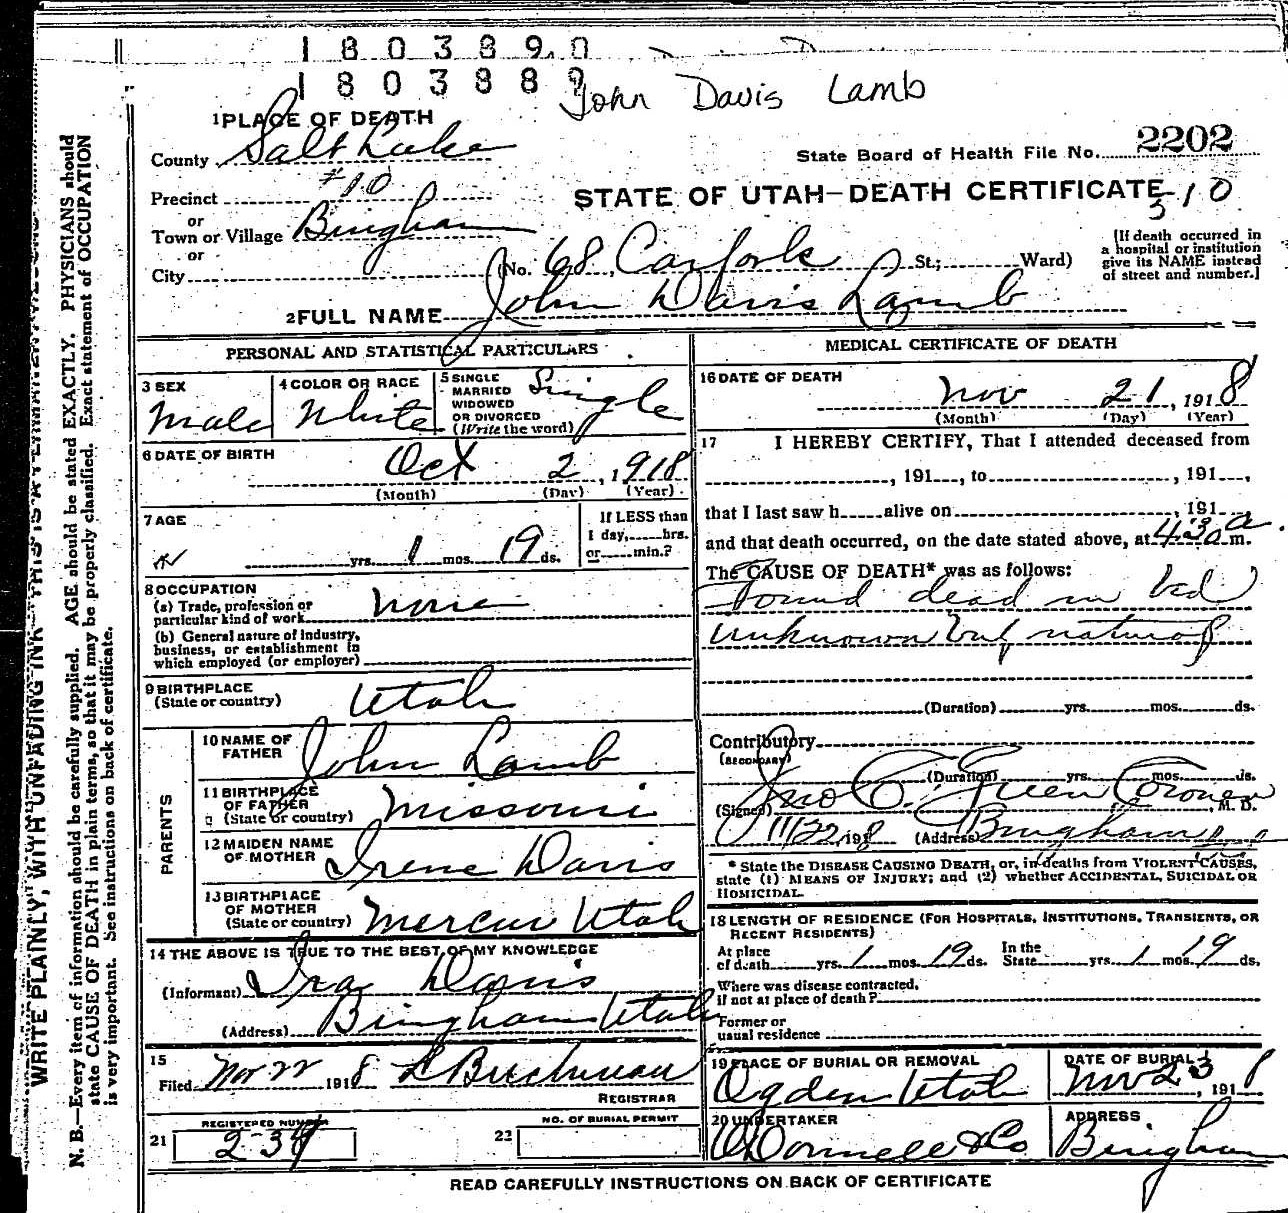 1803890
1803889
John Davis Lamb
1 PLACE OF DEATH
County Salt Lake
State Board of Health File No. 2202
Precinct #10
STATE OF UTAH—DEATH CERTIFICATE
310
or
Town or Village Bingham
or
City
(No. 68 Carfork St.; Ward)
[If death occurred in
a hospital or institution
give its NAME instead
of street and number.]
2 FULL NAME John Davis Lamb
PERSONAL AND STATISTICAL PARTICULARS
3 SEX
Male
4 COLOR OR RACE
White
5 SINGLE
MARRIED
WIDOWED
OR DIVORCED
(Write the word)
Single
6 DATE OF BIRTH
Oct 2, 1918
(Month) (Day) (Year)
7 AGE
yrs. 1 mos. 19 ds.
If LESS than
1 day, hrs.
or min.?
8 OCCUPATION
(a) Trade, profession or
particular kind of work none
(b) General nature of industry,
business, or establishment in
which employed (or employer)
9 BIRTHPLACE
(State or country)
Utah
PARENTS
10 NAME OF
FATHER
John Lamb
11 BIRTHPLACE
OF FATHER
(State or country)
Missouri
12 MAIDEN NAME
OF MOTHER
Irene Davis
13 BIRTHPLACE
OF MOTHER
(State or country)
Mercur Utah
14 THE ABOVE IS TRUE TO THE BEST OF MY KNOWLEDGE
(Informant) Ira Davis
(Address) Bingham Utah
15
Filed Nov 22 1918 L Buchman
REGISTRAR
21
REGISTERED NUMBER
234
22
NO. OF BURIAL PERMIT
MEDICAL CERTIFICATE OF DEATH
16 DATE OF DEATH
Nov 21, 1918
(Month) (Day) (Year)
17 I HEREBY CERTIFY, That I attended deceased from
, 191 , to , 191 ,
that I last saw h alive on , 191
and that death occurred, on the date stated above, at 4:30 a m.
The CAUSE OF DEATH* was as follows:
Found dead in bed
unknown but natural
(Duration) yrs. mos. ds.
Contributory
(SECONDARY)
(Duration) yrs. mos. ds.
(Signed) Jno C. Green Coroner M. D.
11/22, 1918 (Address) Bingham
* State the DISEASE CAUSING DEATH, or, in deaths from VIOLENT CAUSES,
state (1) MEANS OF INJURY; and (2) whether ACCIDENTAL, SUICIDAL OR
HOMICIDAL.
18 LENGTH OF RESIDENCE (FOR HOSPITALS, INSTITUTIONS, TRANSIENTS, OR
RECENT RESIDENTS)
At place
of death yrs. 1 mos. 19 ds.
In the
State yrs. 1 mos. 19 ds.
Where was disease contracted,
if not at place of death?
Former or
usual residence
19 PLACE OF BURIAL OR REMOVAL
Ogden Utah
DATE OF BURIAL
Nov 23, 1918
20 UNDERTAKER
O'Donnell & Co
ADDRESS
Bingham
READ CAREFULLY INSTRUCTIONS ON BACK OF CERTIFICATE
WRITE PLAINLY, WITH UNFADING INK—THIS IS A PERMANENT RECORD
N. B.—Every item of information should be carefully supplied. AGE should be stated EXACTLY. PHYSICIANS should
state CAUSE OF DEATH in plain terms, so that it may be properly classified. Exact statement of OCCUPATION
is very important. See instructions on back of certificate.